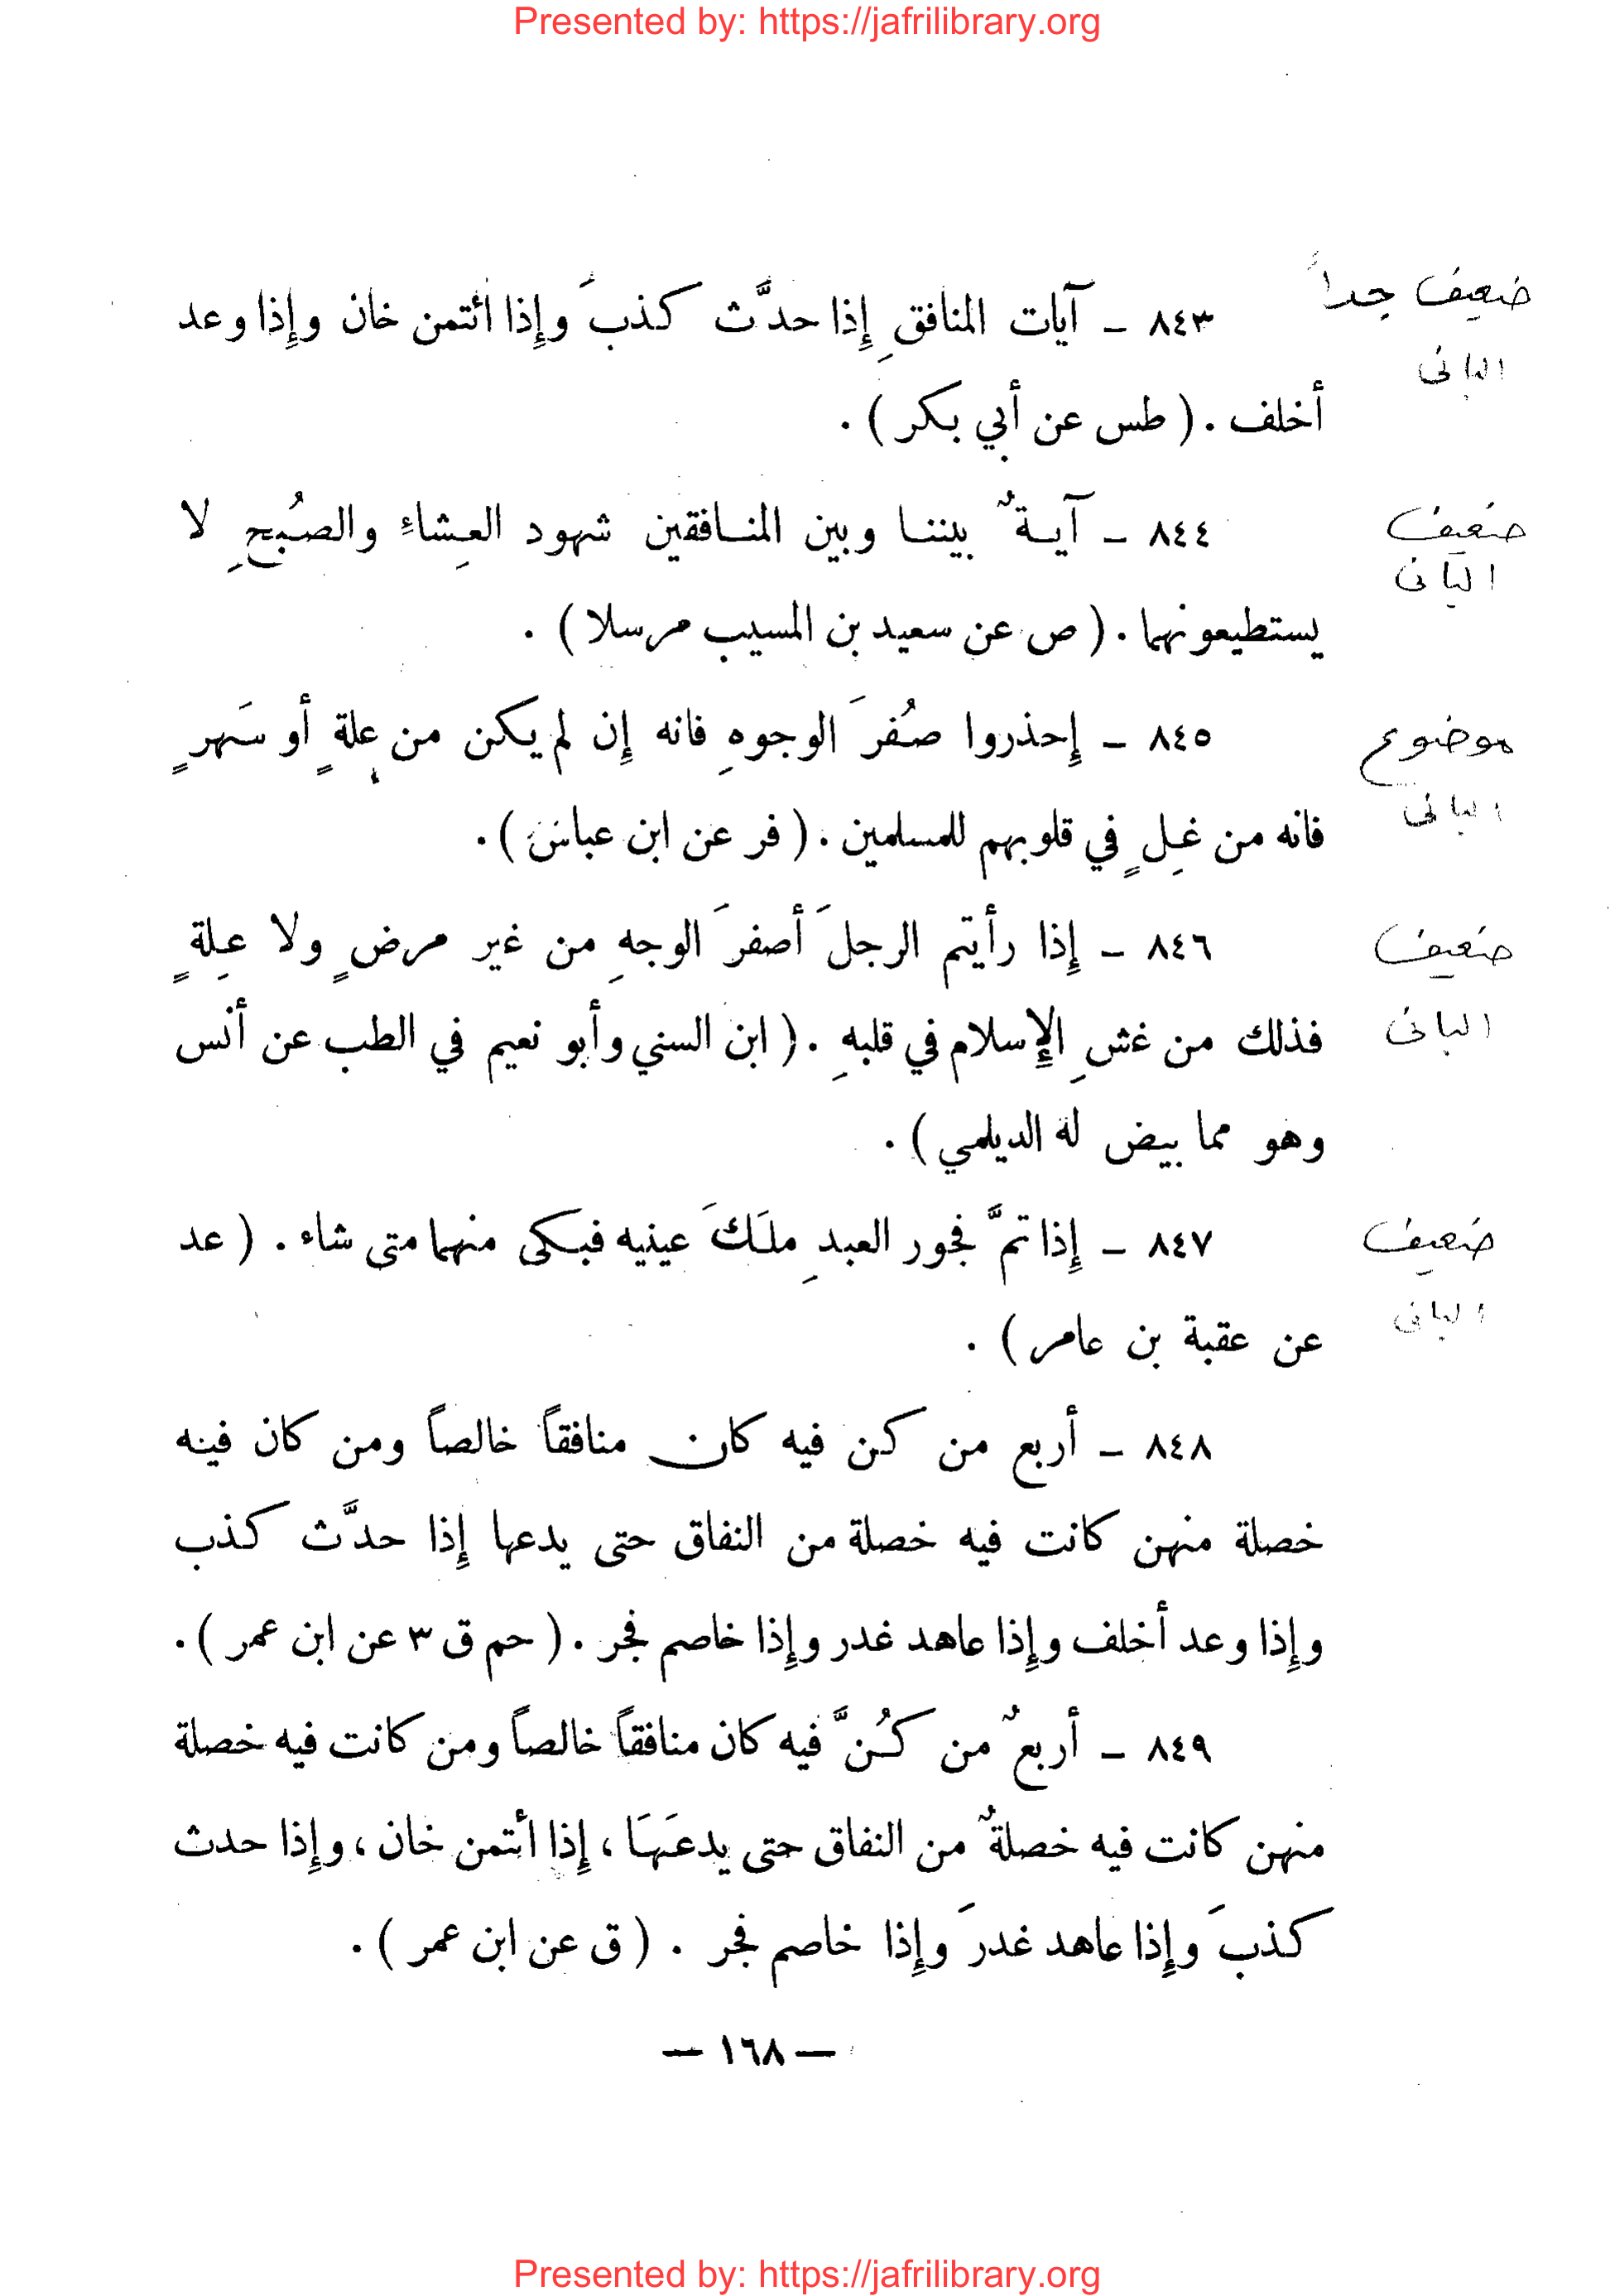 Presented by: https://jafrilibrary.org
ضعيف جداً
٨٤٣ – آيات المنافقِ إِذا حدَّث كذبَ وإِذا ائتمن خان وإِذا وعد
البانى
أخلف . ( طس عن أبي بكر ) .
ضعيف
٨٤٤ – آيـةٌ بيننـا وبين المنـافقين شهود العِشاءِ والصُبحِ لا
البانى
يستطيعونهما . ( ص عن سعيد بن المسيب مرسلا ) .
موضوع
٨٤٥ – إِحذروا صُفرَ الوجوهِ فانه إِن لم يكن من عِلةٍ أو سَهرٍ
البانى
فانه من غِلٍ في قلوبهم للمسلمين . ( فر عن ابن عباس ) .
ضعيف
٨٤٦ – إِذا رأيتم الرجلَ أصفرَ الوجهِ من غير مرضٍ ولا عِلةٍ
البانى
فذلك من غشِ الإِسلام في قلبهِ . ( ابن السني وأبو نعيم في الطب عن أنس
وهو مما بيض له الديلمي ) .
ضعيف
٨٤٧ – إِذا تمَّ فجور العبدِ ملَكَ عينيه فبكى منهما متى شاء . ( عد
البانى
عن عقبة بن عامر ) .
٨٤٨ – أربع من كن فيه كان منافقاً خالصاً ومن كان فيه
خصلة منهن كانت فيه خصلة من النفاق حتى يدعها إِذا حدَّث كذب
وإِذا وعد أخلف وإِذا عاهد غدر وإِذا خاصم فجر . ( حم ق ٣ عن ابن عمر ) .
٨٤٩ – أربعٌ من كُنَّ فيه كان منافقاً خالصاً ومن كانت فيه خصلة
منهن كانت فيه خصلةٌ من النفاق حتى يدعَهَا ، إِذا أئتمن خان ، وإِذا حدث
كذبَ وإِذا عاهد غدرَ وإِذا خاصم فجر . ( ق عن ابن عمر ) .
— ١٦٨ —
Presented by: https://jafrilibrary.org